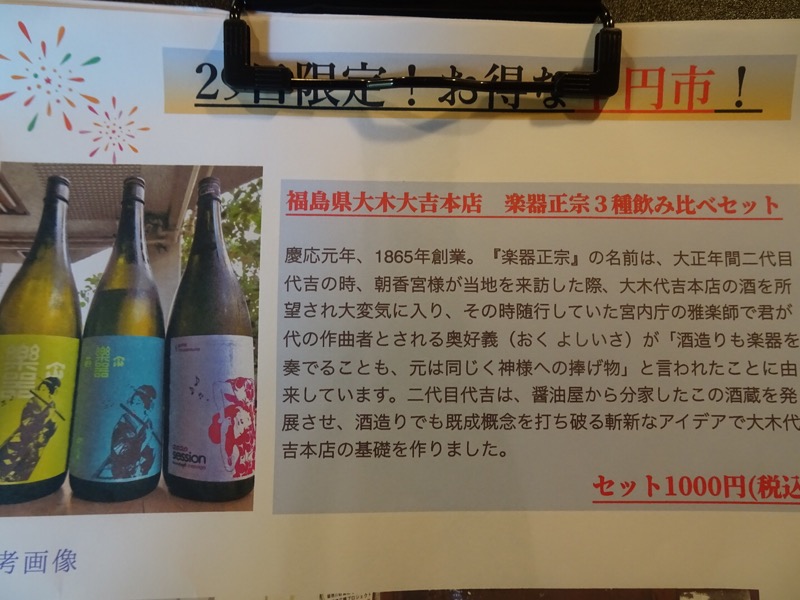 29日限定！お得な千円市！
福島県大木大吉本店　楽器正宗３種飲み比べセット
慶応元年、1865年創業。『楽器正宗』の名前は、大正年間二代目
代吉の時、朝香宮様が当地を来訪した際、大木代吉本店の酒を所
望され大変気に入り、その時随行していた宮内庁の雅楽師で君が
代の作曲者とされる奥好義（おく よしいさ）が「酒造りも楽器を
奏でることも、元は同じく神様への捧げ物」と言われたことに由
来しています。二代目代吉は、醤油屋から分家したこの酒蔵を発
展させ、酒造りでも既成概念を打ち破る斬新なアイデアで大木代
吉本店の基礎を作りました。
セット1000円(税込
楽器
楽器
session
考画像